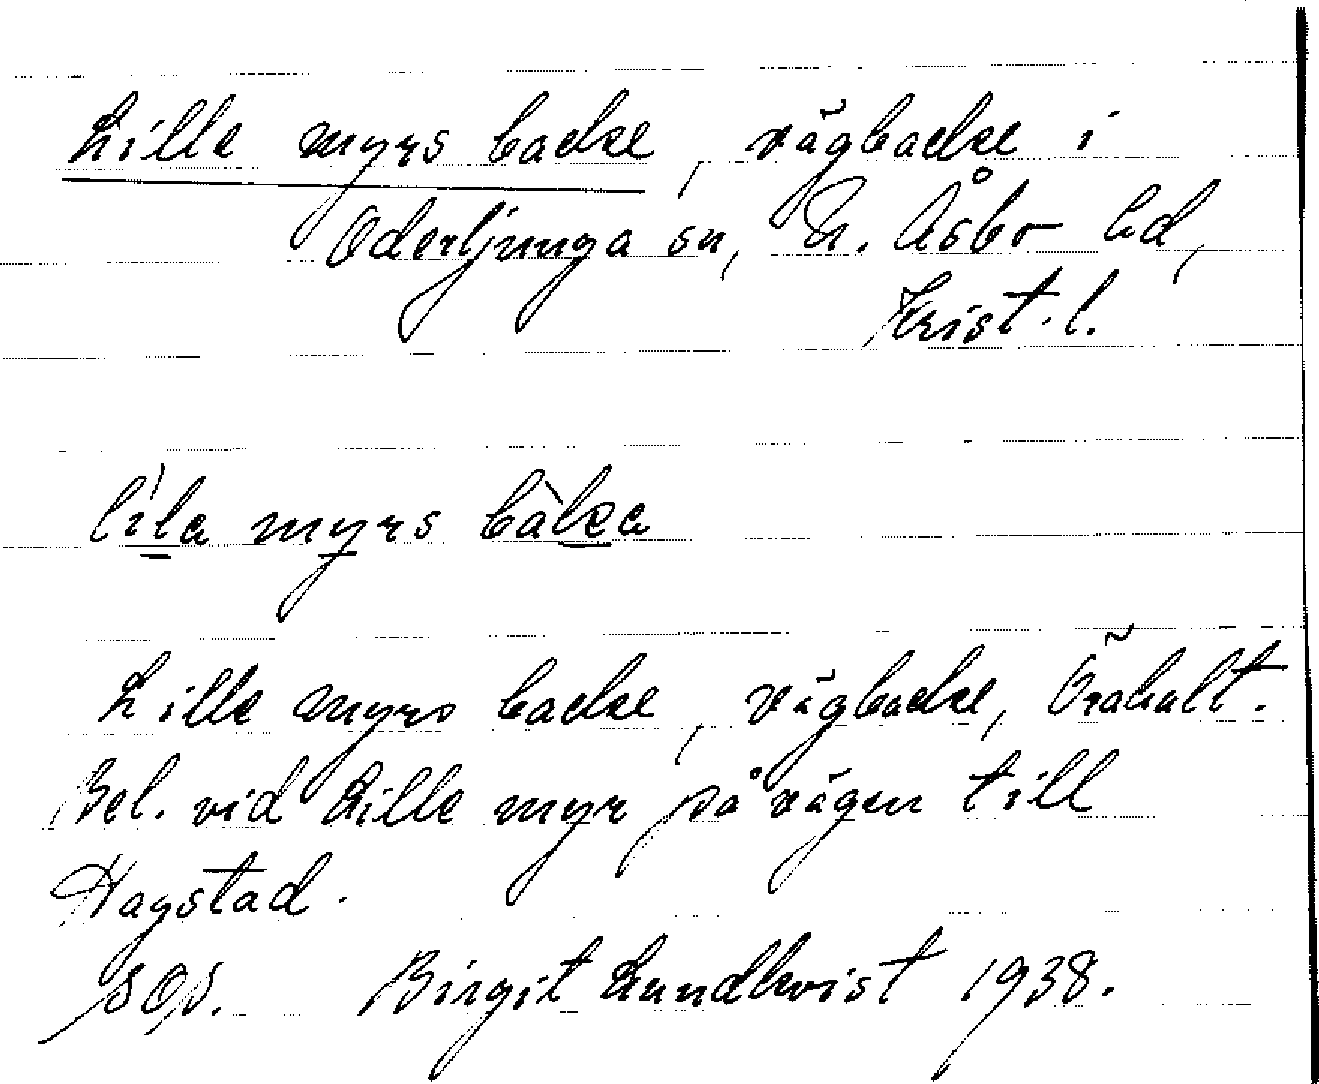 Lille myrs backe, vägbacke i
Oderljunga sn, N. Åsbo hd,
Krist. l.
lila myrs bàkka
Lille myrs backe, vägbacke, Öraholt.
Bel. vid Lille myr på vägen till
Hagstad.
SOS. Birgit Lundkvist 1938.